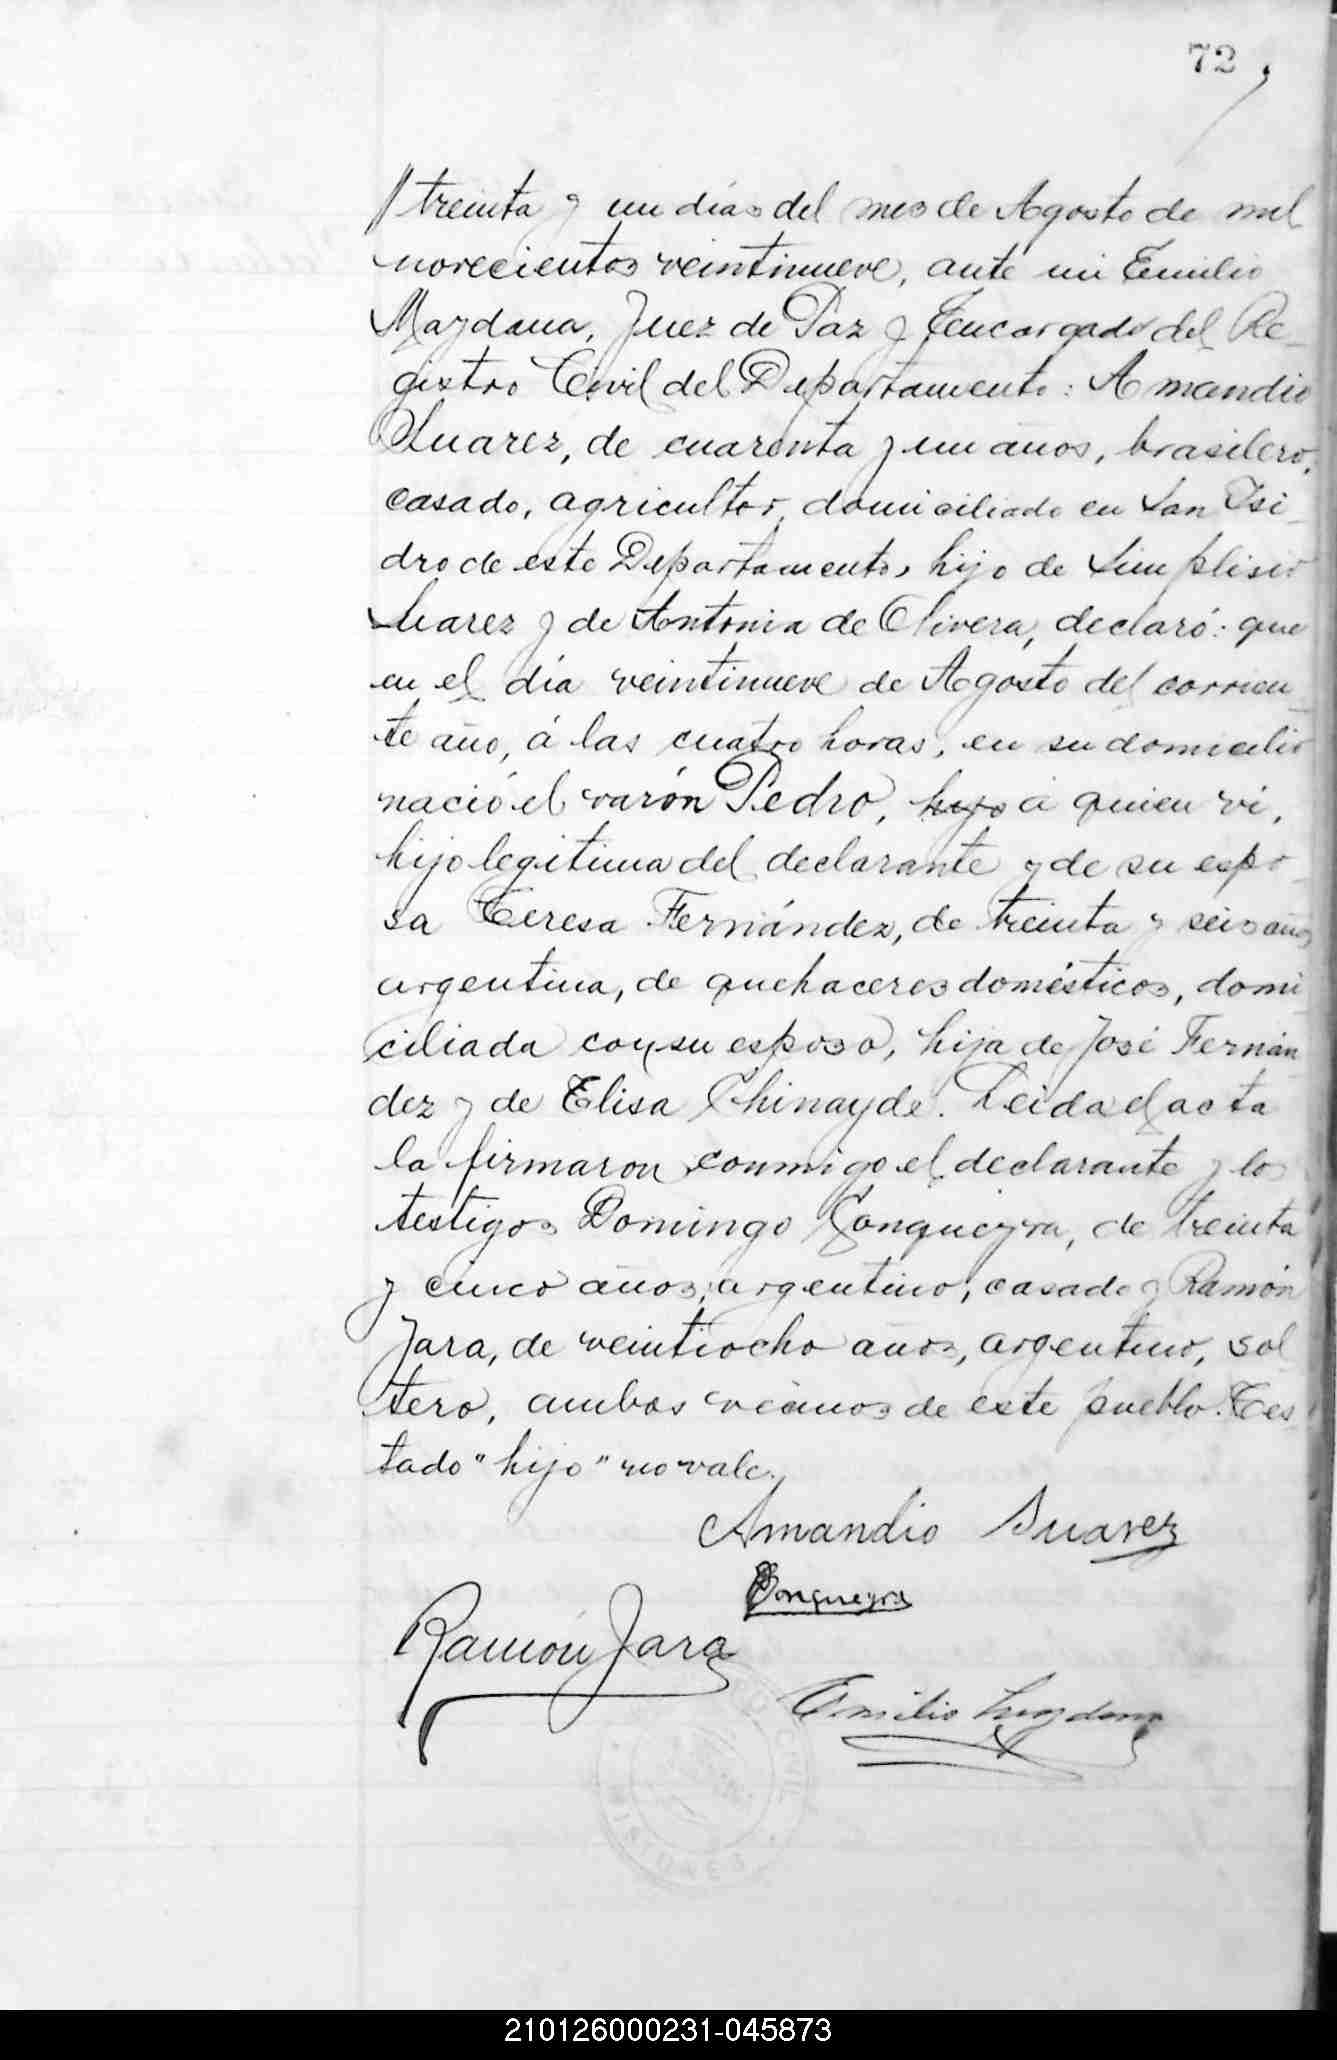 72
// treinta y un días del mes de Agosto de mil
novecientos veintinueve, ante mi Emilio
Maydana, Juez de Paz y Encargado del Re-
gistro Civil del Departamento: Amandio
Suarez, de cuarenta y un años, brasilero,
casado, agricultor, domiciliado en San Isi-
dro de este Departamento, hijo de Simplisio
Suarez y de Antonia de Olivera, declaró: que
en el día veintinueve de Agosto del corrien-
te año, á las cuatro horas, en su domicilio
nació el varón Pedro, hijo á quien vi,
hijo legitima del declarante y de su espo-
sa Teresa Fernández, de treinta y seis años
argentina, de quehaceres domésticos, domi-
ciliada con su esposo, hija de José Fernán-
dez y de Elisa Chinayde. Leida el acta
la firmaron conmigo el declarante y los
testigos Domingo Conqueyra, de treinta
y cinco años, argentino, casado y Ramón
Jara, de veintiocho años, argentino, sol-
tero, ambos vecinos de este pueblo. Tes-
tado "hijo" no vale.
Amandio Suarez
Conqueyra
Ramón Jara
Emilio Maydana
CIVIL
MISIONES
210126000231-045873